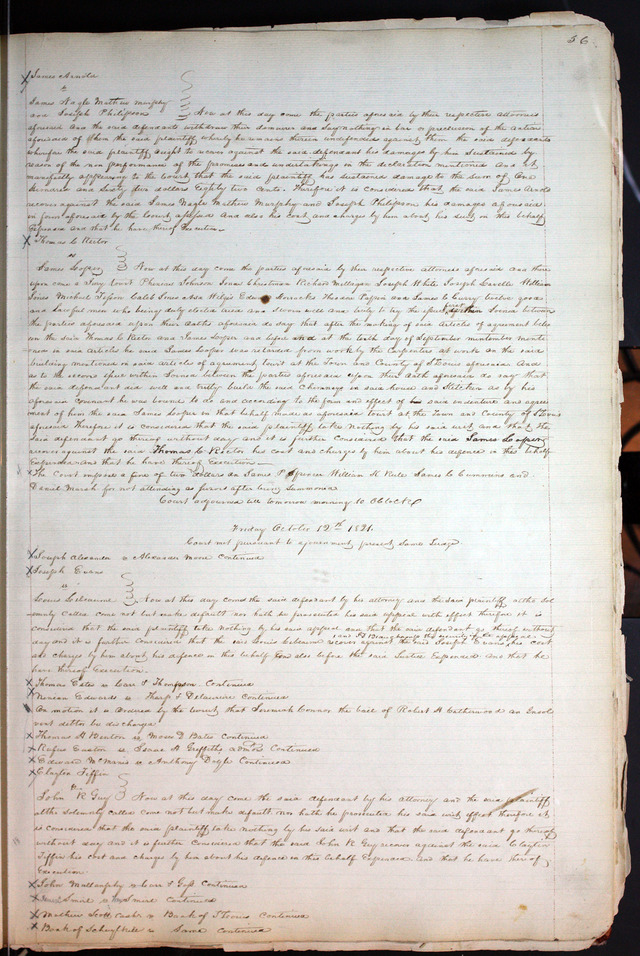 56
James Arnold
vs
James Nagle Mathew Murphy
and Joseph Philipson Now at this day come the parties aforesaid by their respective attornies
aforesaid and the said defendants withdraw their demurrer and say nothing in bar or preclusion of the action
aforesaid of him the said plaintiff whereby he remains therein undefended against them the said defendants
wherefore the said plaintiff ought to recover against the said defendant his damages by him sustained by
reason of the non performance of the promises and undertakings in the declaration mentioned And it
manifestly appearing to the Court that the said plaintiff has sustained damage to the sum of One
Hundred and Sixty five dollars Eighty two cents. Therefore it is considered that the said James Arnold
recover against the said James Nagle Mathew Murphy and Joseph Philipson his damages aforesaid
in form aforesaid by the Court assessed and also his cost and charges by him about his suit in this behalf
Expended and that he have thereof Execution
Thomas C Rector
vs
James Looper Now at this day come the parties aforesaid by their respective attornies aforesaid and there
upon came a Jury to wit Johnson Jonas Christman Richard Milligan Joseph White Joseph Caville William
Jones Michael Caleb Jones Asa Wilgus Edward and James C Curry twelve good
and lawful men who being duly elected tried and sworn well and truly to try the first issue within Joined between
the parties aforesaid upon their oaths aforesaid do say that after the making of said Articles of agreement between
on the said Thomas C Rector and James Looper and before and at the tenth day of September mentioned
in said articles he said James Looper was retarded from work by the Carpenters at work on the said
building mentioned in said articles of agreement to wit at the Town and County of St Louis aforesaid. And
as to the second issue within Joined between the parties aforesaid upon their oath aforesaid do say that
the said defendant did well and truly build the said Chimneys in said house and as by his
aforesaid covenant he was bound to do and according to the form and effect of his said indenture and agree
ment of him the said James Looper in that behalf made as aforesaid to wit at, the Town and County of St Louis
aforesaid Therefore it is considered that the said plaintiff take nothing by his said writ, and that the
said defendant go thereof without day and it is further Considered that the said James Looper
recover against the said Thomas C Rector his cost and charges by him about his defence in this behalf
Expended and that he have thereof Execution
The Court imposed a fine of two dollars on James P Spencer William K Rule James C Cummins and
Daniel Marsh for not attending as Jurors after being Summoned
Court adjourned till tomorrow morning 10 OClock
Friday October 12th 1821.
Court met pursuant to agreement, present Same Judge
Joseph Alexander vs Alexander Moore Continued
Joseph Evans
vs
Louis Lebeaume Now at this day comes the said defendant by his attorney and the said plaintiff, altho sol
emnly called come not but make default nor hath he prosecuted his said appeal with effect therefore it is
considered that the said plaintiff take nothing by his said appeal and that the said defendant go thereof without
day and it is further considered that the said Louis Lebeaume recover against the said Joseph Evans his cost
and charges by him about his defence in this behalf and also before the said Justice Expended and that he
have thereof Execution
Thomas Estes vs Carr & Thompson Continued
Ninian Edwards vs Tharp & Delauriere Continued
On motion it is ordered by the Court that Jeremiah Connor the bail of Robert H Catherwood an Insol
vent debtor be discharged
Thomas H Benton vs Moses D Bates Continued
Rufus Easton vs Isaac A Griffiths admor Continued
Edward McManus vs Anthony Doyle Continued
Clayton Tiffin
vs
John R Guy Now at this day come the said defendant by his attorney and the said plaintiff
altho solemnly called come not but make default nor hath he prosecuted his said writ effect therefore it
is considered that the said plaintiff take nothing by his said writ and that the said defendant go thereof
without day and it is further Considered that the said John R Guy recover against the said Clayton
Tiffin his cost and charges by him about his defence in this behalf Expended and that he have thereof
Execution
John Mullanphy vs Carr & Continued
Smere vs Smere Continued
Mathew Scott Cashr vs Bank of St Louis Continued
Bank of Schuylkill vs Same Continued